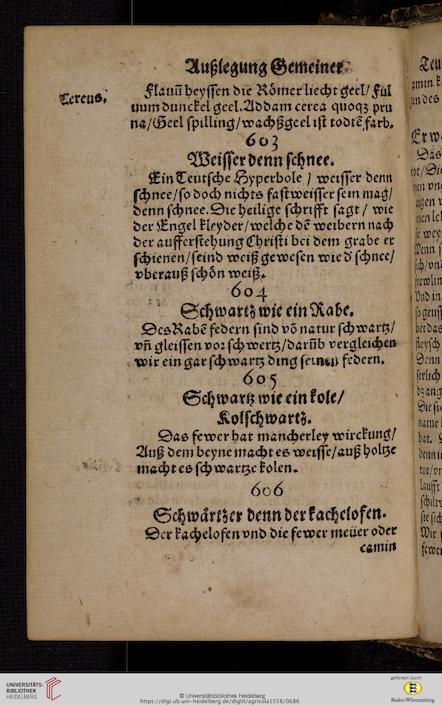 Außlegung Gemeiner
Cereus.
Flauũ heyssen die Römer liecht geel/ Ful
uum dunckel geel. Addam cerea quoqz pru
na/Geel spilling/wachßgeel ist todtẽ farb.
603
Weisser denn schnee.
Ein Teutsche Hyperbole / weisser denn
schnee/so doch nichts fast weisser sein mag/
denn schnee. Die heilige schrifft sagt / wie
der Engel kleyder/welche dẽ weibern nach
der aufferstehung Christi bei dem grabe er
schienen/seind weiß gewesen wie d schnee/
vberauß schön weiß.
604
Schwartz wie ein Rabe.
Des Rabẽ federn sind võ natur schwartz/
vñ gleissen vor schwertz/darũb vergleichen
wir ein gar schwartz ding seinen federn.
605
Schwartz wie ein kole/
Kolschwartz.
Das fewer hat mancherley wirckung/
Auß dem beyne macht es weisse/auß holtze
macht es schwartze kolen.
606
Schwärtzer denn der kachelofen.
Der kachelofen vnd die fewer meüer oder
camin
UNIVERSITÄTS-
BIBLIOTHEK
HEIDELBERG
© Universitätsbibliothek Heidelberg
https://digi.ub.uni-heidelberg.de/diglit/agricola1558/0686
gefördert durch
Baden-Württemberg